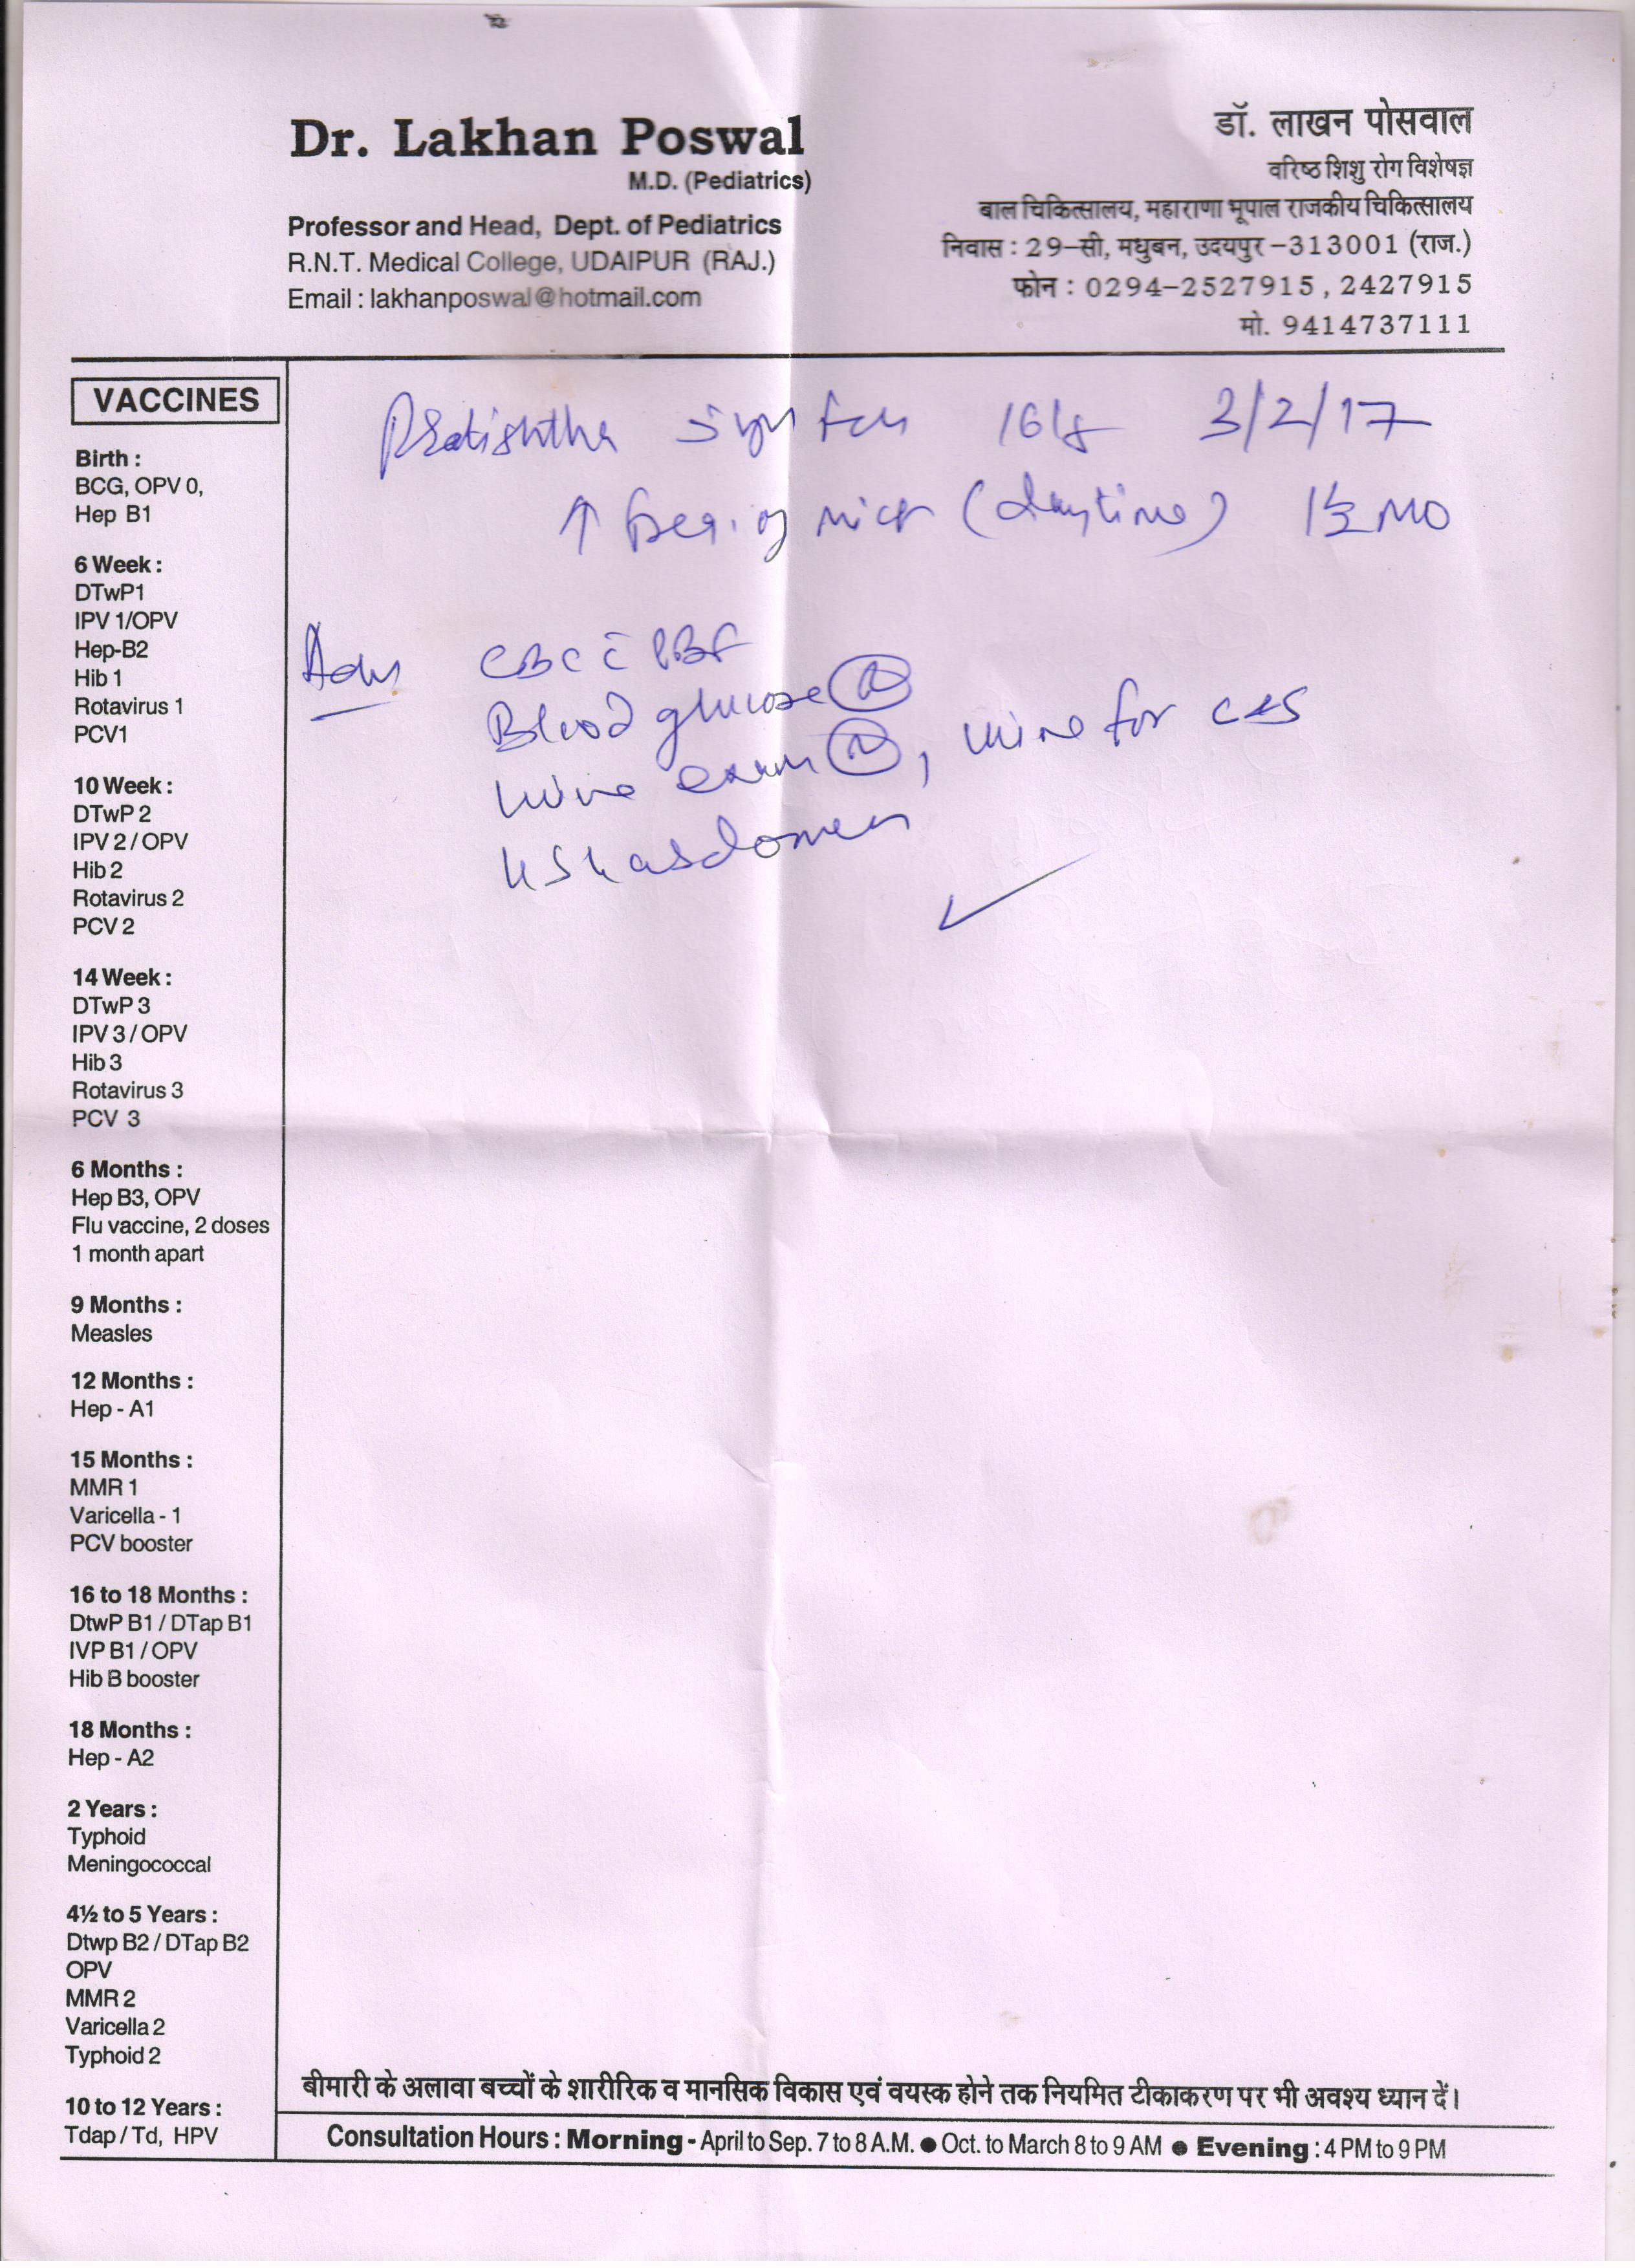 Dr. Lakhan Poswal
M.D. (Pediatrics)
Professor and Head, Dept. of Pediatrics
R.N.T. Medical College, UDAIPUR (RAJ.)
Email : lakhanposwal@hotmail.com
डॉ. लाखन पोसवाल
वरिष्ठ शिशु रोग विशेषज्ञ
बाल चिकित्सालय, महाराणा भूपाल राजकीय चिकित्सालय
निवास : 29-सी, मधुबन, उदयपुर-313001 (राज.)
फोन : 0294-2527915, 2427915
मो. 9414737111
VACCINES
Birth :
BCG, OPV 0,
Hep B1
6 Week :
DTwP1
IPV 1/OPV
Hep-B2
Hib 1
Rotavirus 1
PCV1
10 Week :
DTwP 2
IPV 2 / OPV
Hib 2
Rotavirus 2
PCV 2
14 Week :
DTwP 3
IPV 3 / OPV
Hib 3
Rotavirus 3
PCV 3
6 Months :
Hep B3, OPV
Flu vaccine, 2 doses
1 month apart
9 Months :
Measles
12 Months :
Hep - A1
15 Months :
MMR 1
Varicella - 1
PCV booster
16 to 18 Months :
DtwP B1 / DTap B1
IVP B1 / OPV
Hib B booster
18 Months :
Hep - A2
2 Years :
Typhoid
Meningococcal
4½ to 5 Years :
Dtwp B2 / DTap B2
OPV
MMR 2
Varicella 2
Typhoid 2
10 to 12 Years :
Tdap / Td, HPV
Pratishtha 3/2/17
↑ freq. of mict (daytime) 1½ MO
Adv CBC c̄ PBF
Blood glucose (R)
Urine exam (N), urine for C&S
USG abdomen
बीमारी के अलावा बच्चों के शारीरिक व मानसिक विकास एवं वयस्क होने तक नियमित टीकाकरण पर भी अवश्य ध्यान दें।
Consultation Hours : Morning - April to Sep. 7 to 8 A.M. ● Oct. to March 8 to 9 AM ● Evening : 4 PM to 9 PM